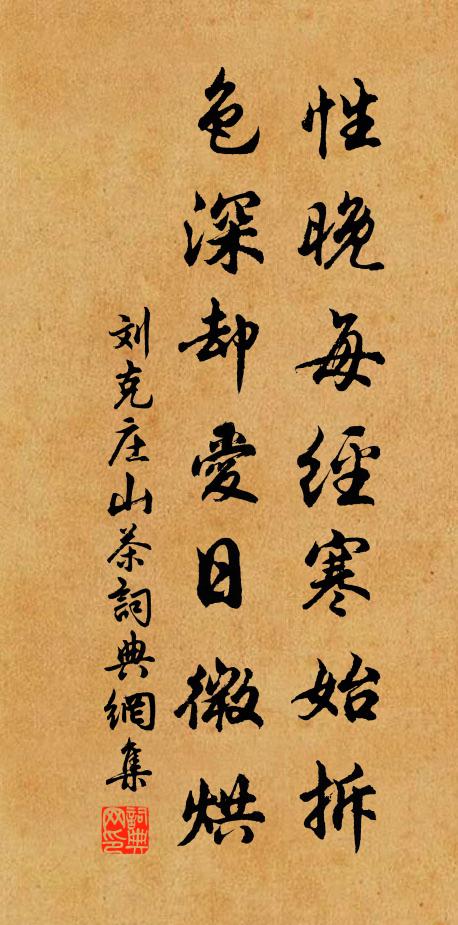 性晚每經寒始拆
色深却愛日微烘
刘克庄山茶詞典網集
詞典网印